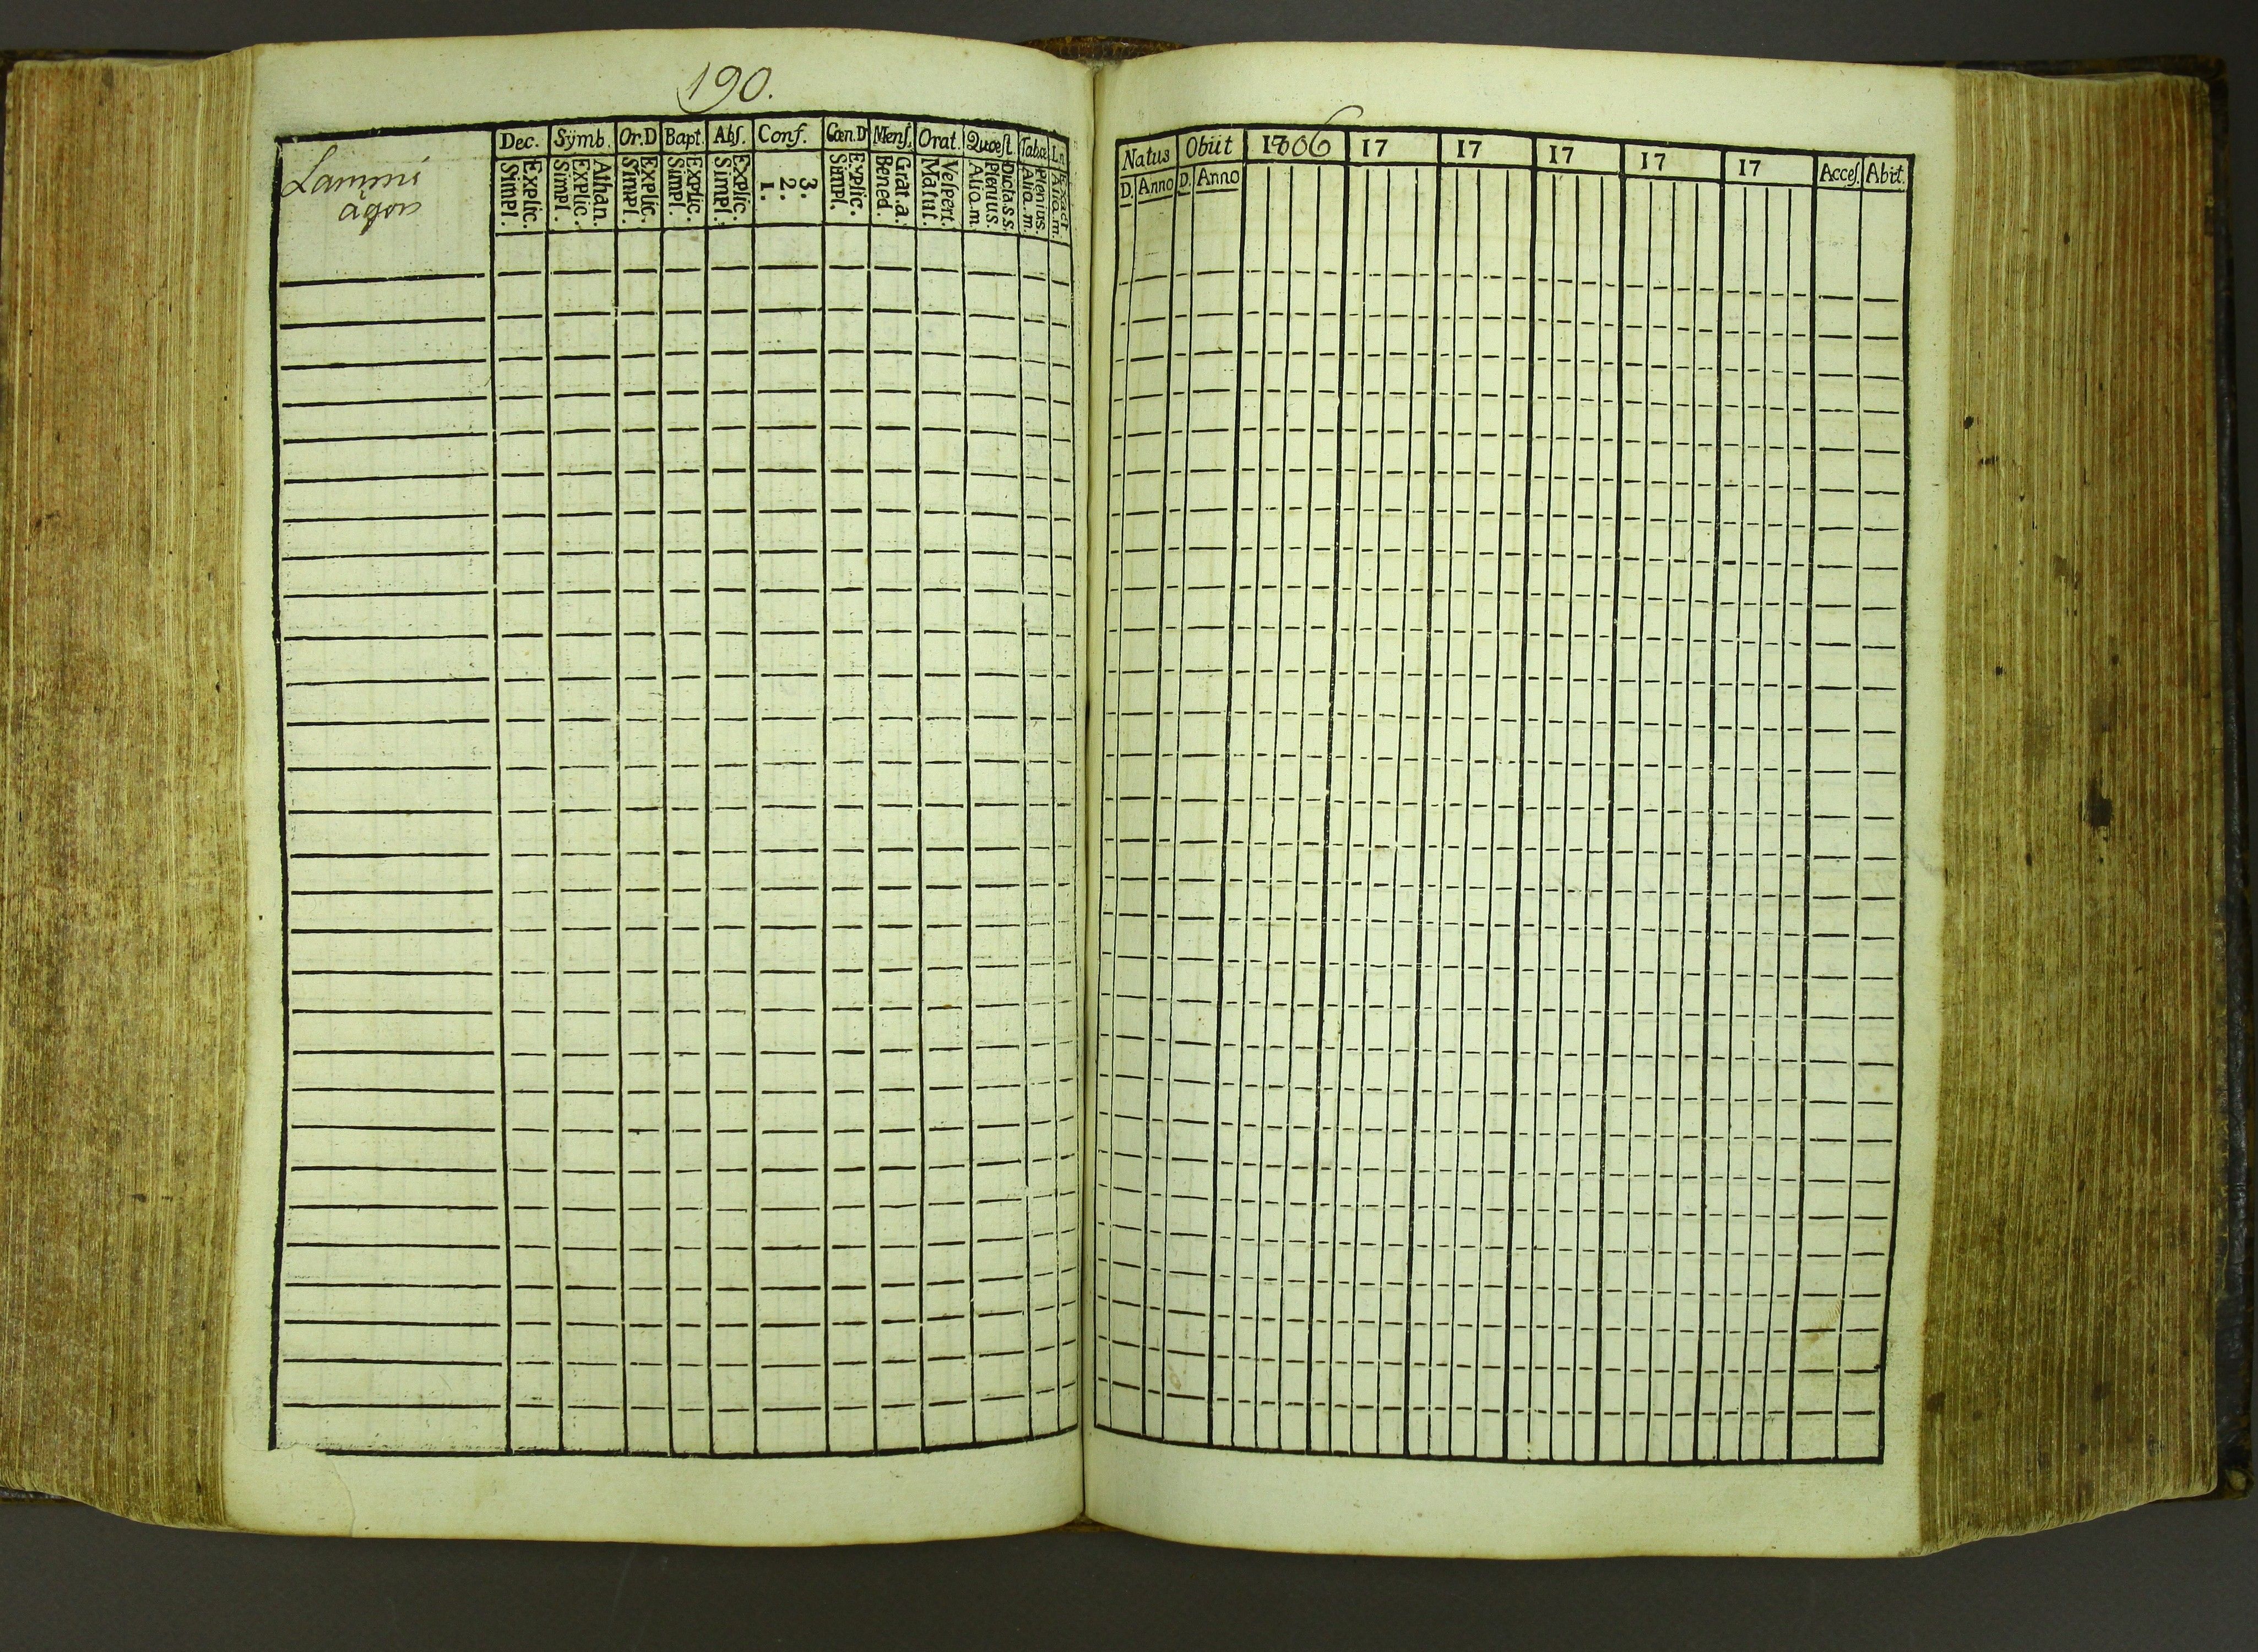 190.
Lammi
ägon
Dec. Sÿmb. Or.D Bapt. Abſ. Conf. Cœn.D Menſ. Orat. Quœſt. Tabœ
Explic.
Simpl.
Athan.
Explic.
Simpl.
Explic.
Simpl.
Explic.
Simpl.
Explic.
Simpl.
3.
2.
1.
Explic.
Simpl.
Grat.a.
Bened.
Veſpert.
Matut.
Dicta S.S.
Plenius.
Alio.m.
Plenius.
Alio.m.
Natus Obiit 1806 17 17 17 17 17 Acceſ. Abit.
D. Anno D. Anno